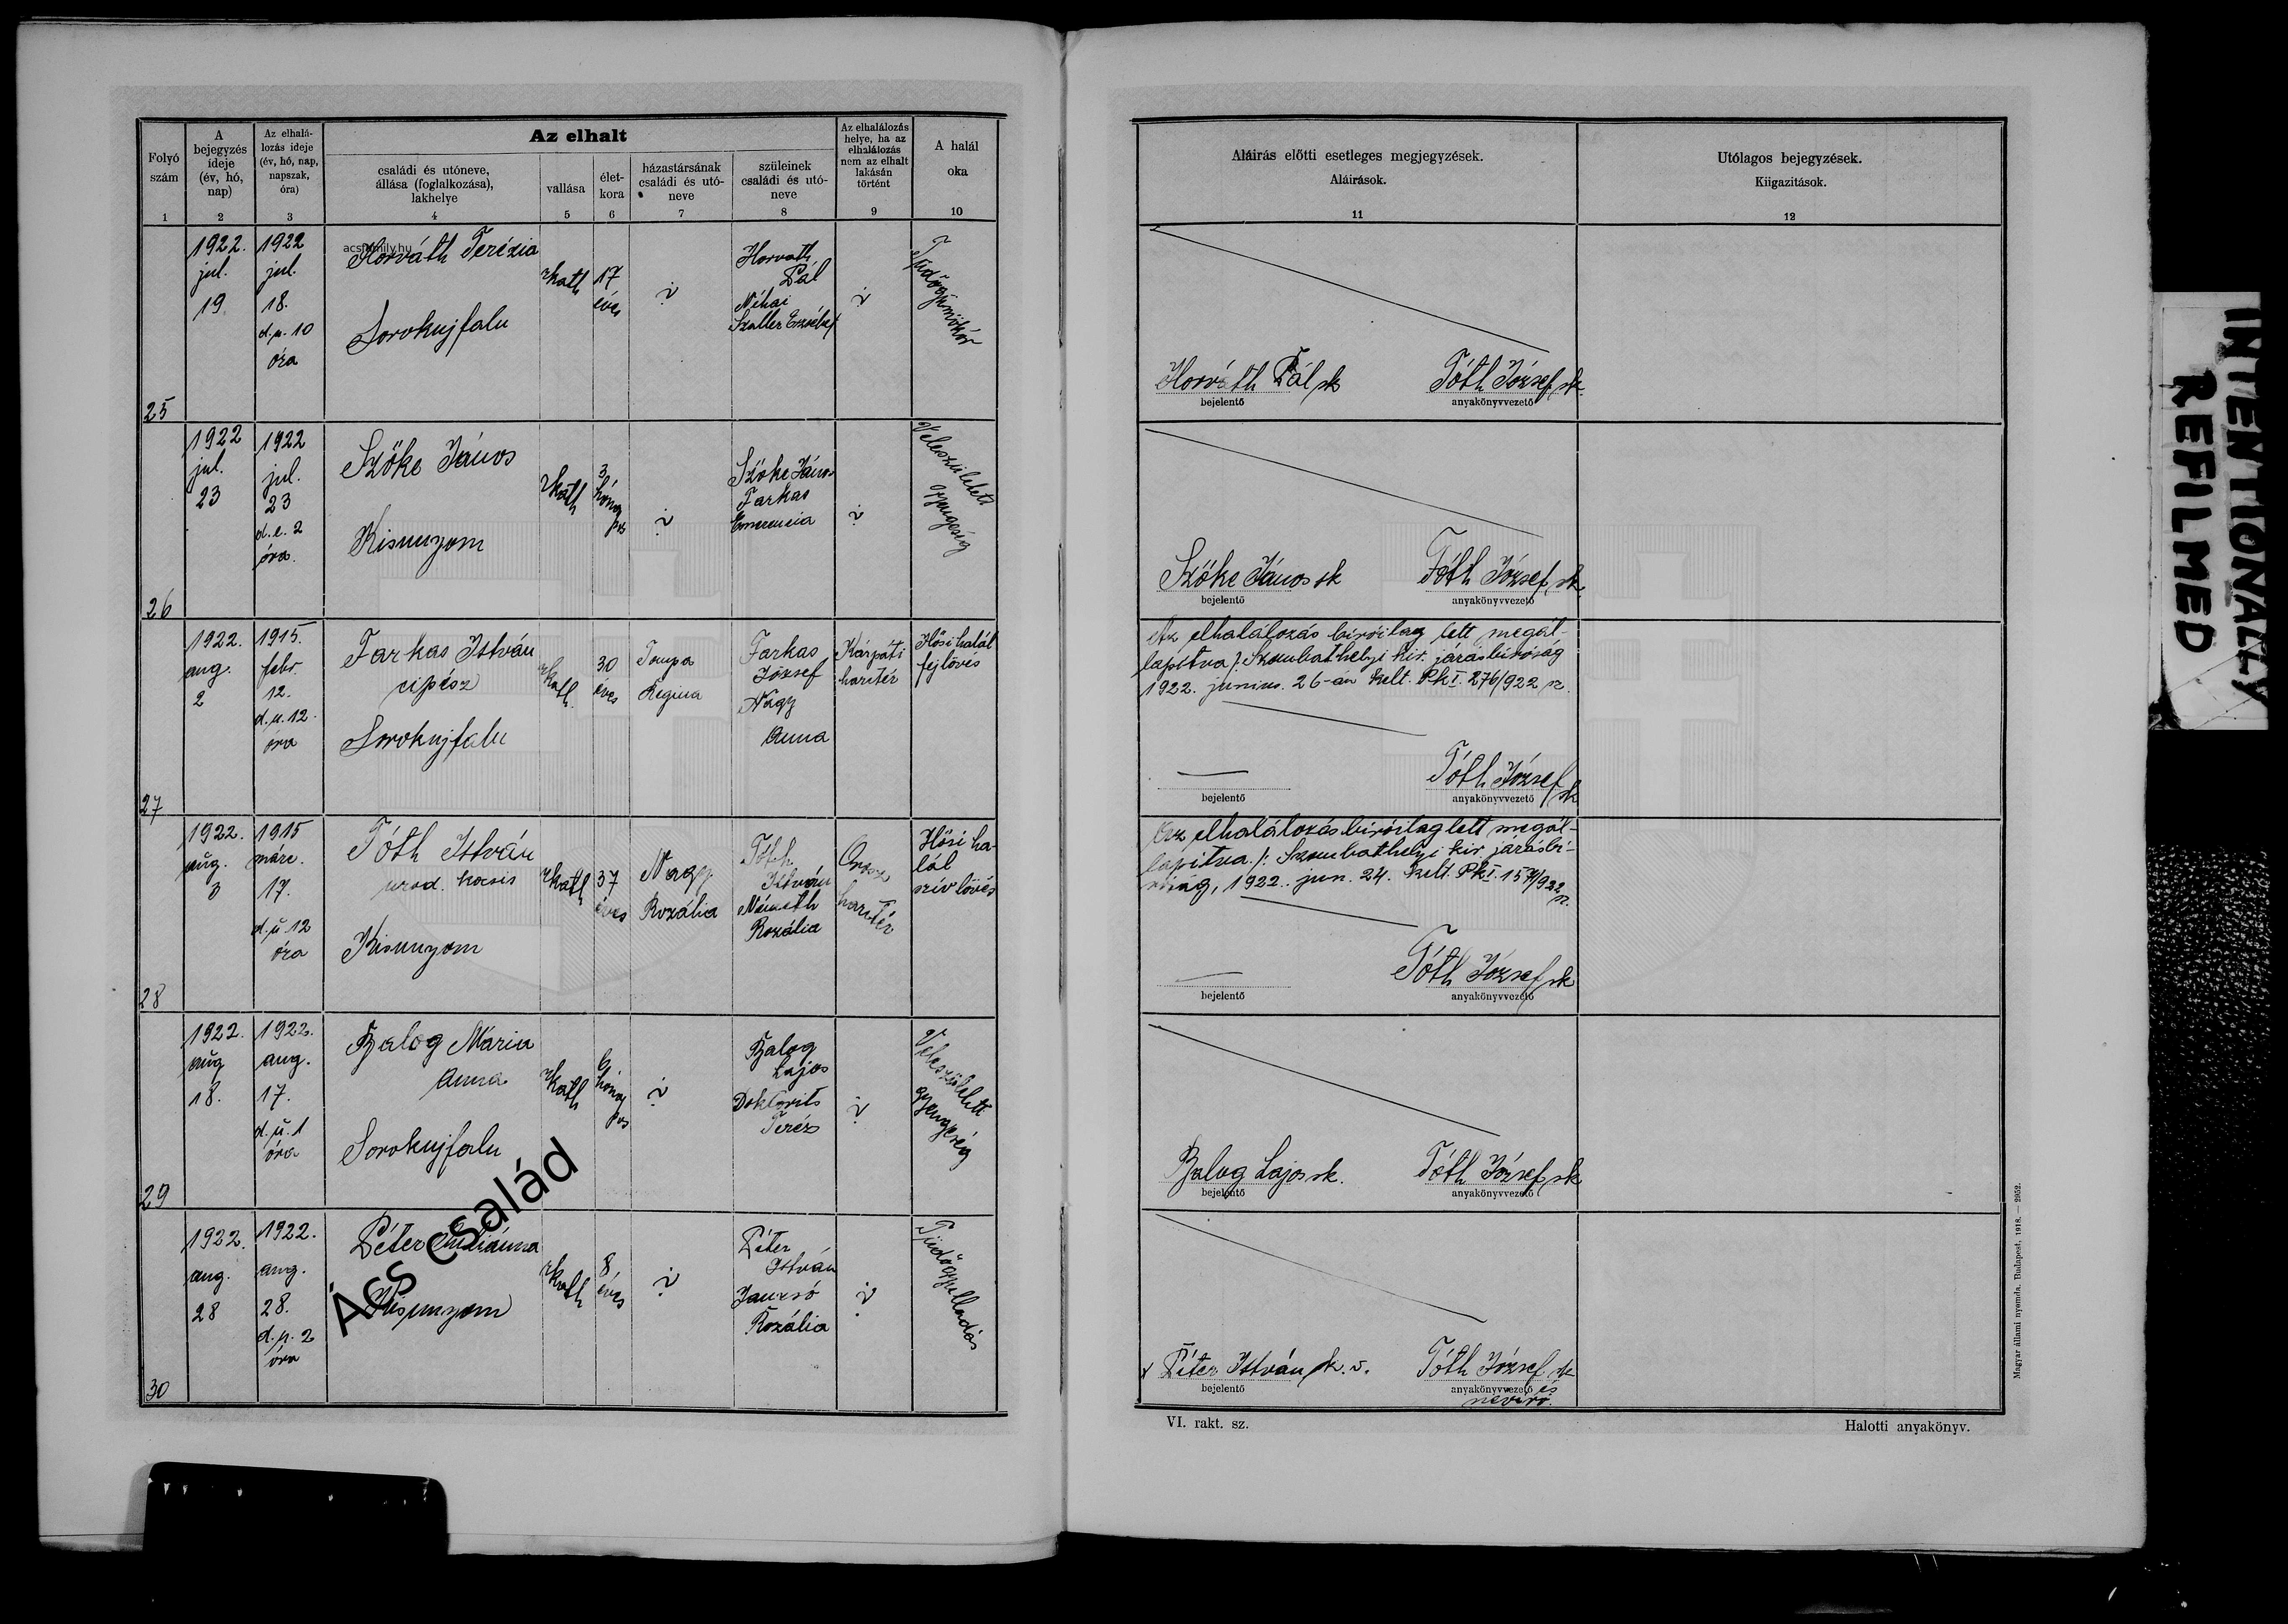 Folyó szám
A bejegyzés ideje (év, hó, nap)
Az elhalálozás ideje (év, hó, nap, napszak, óra)
Az elhalt
családi és utóneve, állása (foglalkozása), lakhelye
vallása
életkora
házastársának családi és utóneve
szüleinek családi és utóneve
Az elhalálozás helye, ha az elhalálozás nem az elhalt lakásán történt
A halál oka
1 2 3 4 5 6 7 8 9 10
25
1922. jul. 19.
1922 jul. 18. d.u. 10 óra
Horváth Terézia
acsfamily.hu
Sorokujfalu
rkath
17 éves
Horvath Pál
Néhai Szaller Erzsébet
Tüdőgümőkór
26
1922 jul. 23
1922 jul. 23 d.e. 2 óra.
Szőke János
Kisunyom
rkath
3 hónapos
Szőke János
Farkas Emerencia
Veleszületett gyengeség
27
1922. aug. 2
1915. febr. 12. d.u. 12. óra
Farkas István
cipész
Sorokujfalu
rkath.
30 éves
Tompa Regina
Farkas József
Nagy Anna
Kárpáti harctér
Hősi halál fejlövés
28
1922. aug. 3
1915 márc. 17. d.u 12 óra
Tóth István
urad. kocsis
Kisunyom
rkath
37 éves
Nagy Rozália
Tóth István
Németh Rozália
Orosz harctér
Hősi halál szívlövés
29
1922. aug 18.
1922. aug. 17. d.u. 1 óra
Balog Mária
Anna
Sorokujfalu
rkath
hónapos
Balog Lajos
Doktorits Teréz
Veleszületett gyengeség
30
1922. aug. 28
1922. aug. 28. d.u. 2 óra
Péter
Kisunyom
rkath
8 éves
Péter István
Jancsó Rozália
Tüdőgyulladás
Ács család
Aláirás előtti esetleges megjegyzések.
Aláirások.
11
Utólagos bejegyzések.
Kiigazitások.
12
Horváth Pál sk
Tóth József sk.
bejelentő
anyakönyvvezető
Szőke János sk
Tóth József sk.
bejelentő
anyakönyvvezető
Az elhalálozás biróilag lett megál-
lapitva /: Szombathelyi kir. járásbiróság
1922. junius. 26-án kelt. Pk I. 276/922 sz.
Tóth József sk
bejelentő
anyakönyvvezető
Az elhalálozás biróilag lett megál-
lapitva. /: Szombathelyi kir. járásbi-
róság, 1922. jun. 24. kelt. Pk I. /922 sz.
Tóth József sk
bejelentő
anyakönyvvezető
Balog Lajos sk.
Tóth József sk
bejelentő
anyakönyvvezető
x Péter István k. v.
Tóth József sk
bejelentő
anyakönyvvezető és
névíró.
VI. rakt. sz.
Halotti anyakönyv.
Magyar állami nyomda. Budapest, 1918. — 2952.
INTENTIONALLY
REFILMED